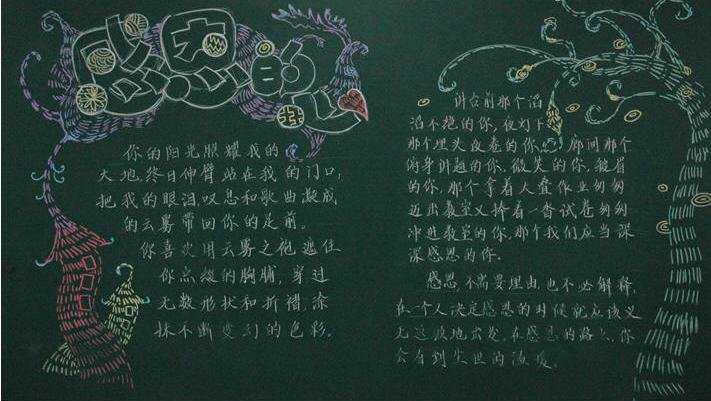 你的阳光照耀我的
大地,终日伸臂站在我的门口,
把我的眼泪,叹息和歌曲凝成
的云雾带回你的足前。
你喜欢用云雾之袍遮住
你点缀的胸脯,穿过
无数形状和折褶,涂
抹不断变幻的色彩。
讲台前那个滔
滔不绝的你,夜灯下
那个埋头改卷的你,廊间那个
俯身讲题的你,微笑的你,皱眉
的你,那个拿着大叠作业匆匆
迈出教室又捧着一沓试卷匆匆
冲进教室的你,那个我们应当深
深感恩的你。
感恩,不需要理由,也不必解释,
在一个人决定感恩的时候就应该义
无返顾地出发,在感恩的路上,你
会看到尘世的温暖。